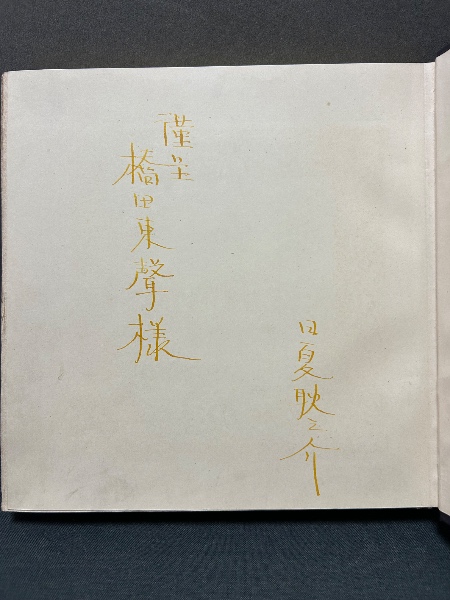 謹呈
橋田東聲様
日夏耿之介